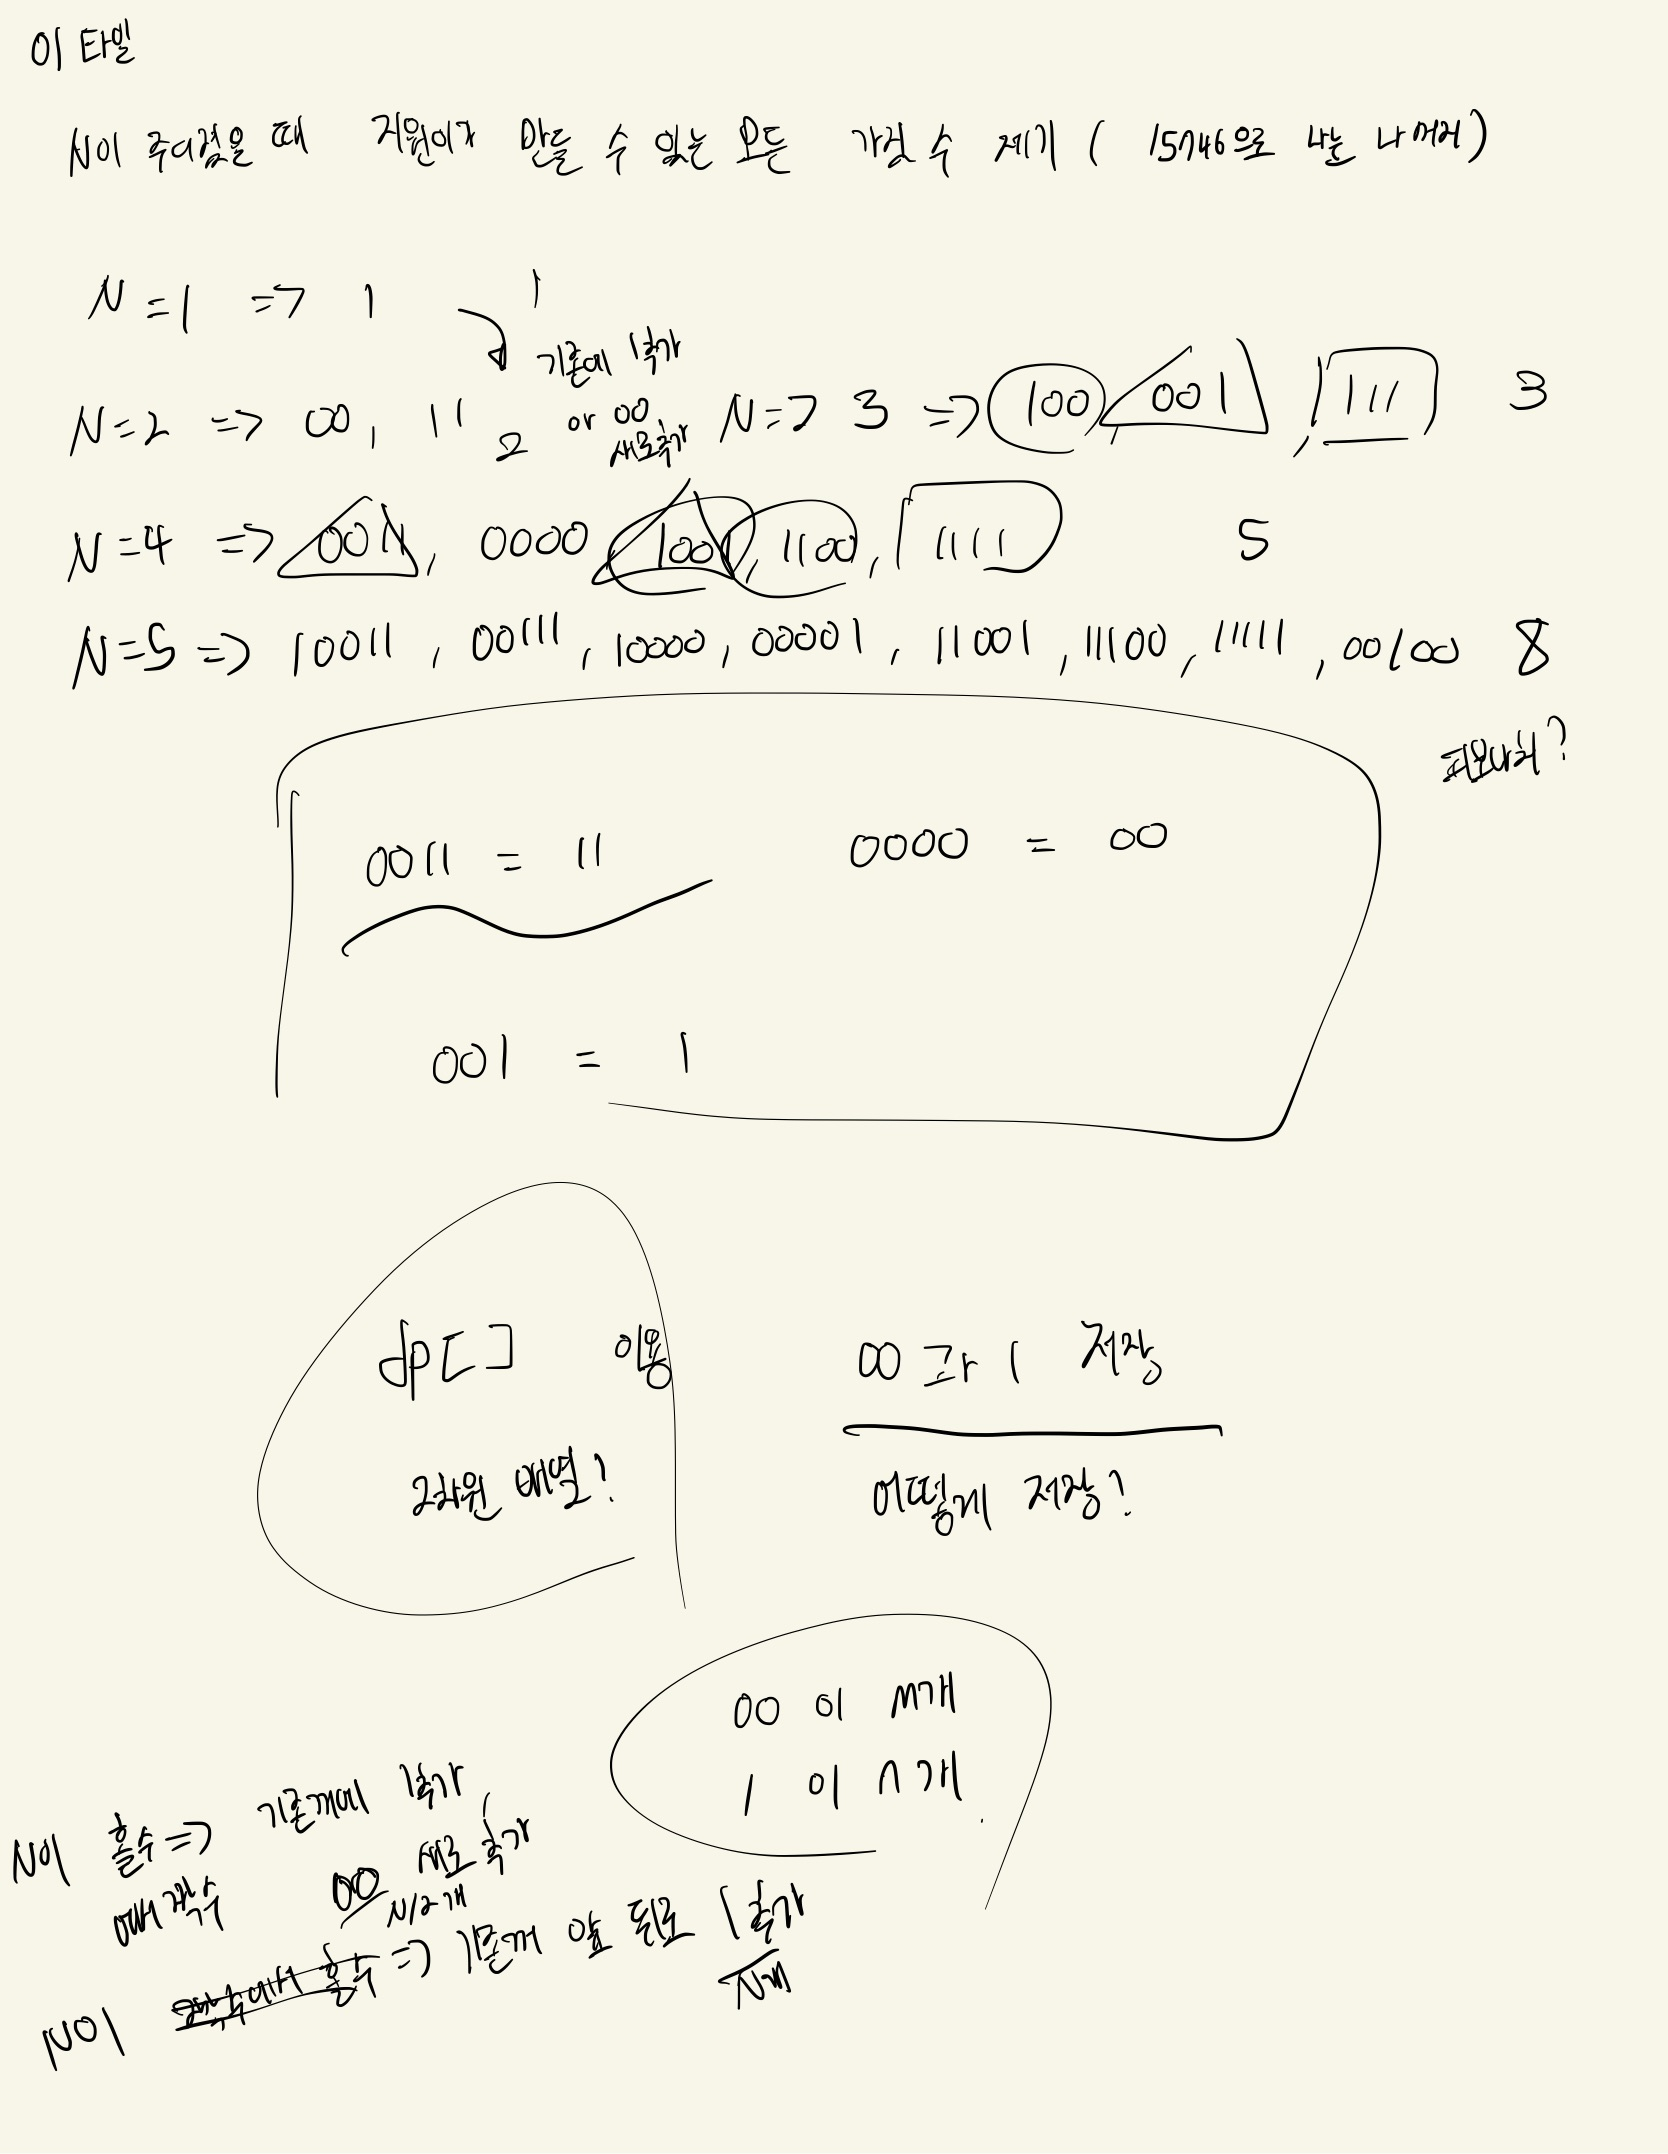 01 타일
N이 주어졌을 때 지원이가 만들 수 있는 모든 가짓 수 세기 ( 15746으로 나눈 나머지)
N=1 => 1 1
기존에 1추가
N=2 => 00, 11 2 or 00 새로추가 N=> 3 => 100, 001, 111 3
N=4 => 0011, 0000 1001, 1100, 1111 5
N=5 => 10011, 00111, 10000, 00001, 11001, 11100, 11111, 00100 8
피보나치?
0011 = 11 0000 = 00
001 = 1
dp[] 이용 00과 1 저장
2차원 배열? 어떻게 저장?
00 이 m개
1 이 n개.
N이 홀수 => 기존꺼에 1추가,
에서 짝수 00 새로 추가
N/2개
N이 짝수에서 홀수 => 기존꺼 앞 뒤로 1추가
N개